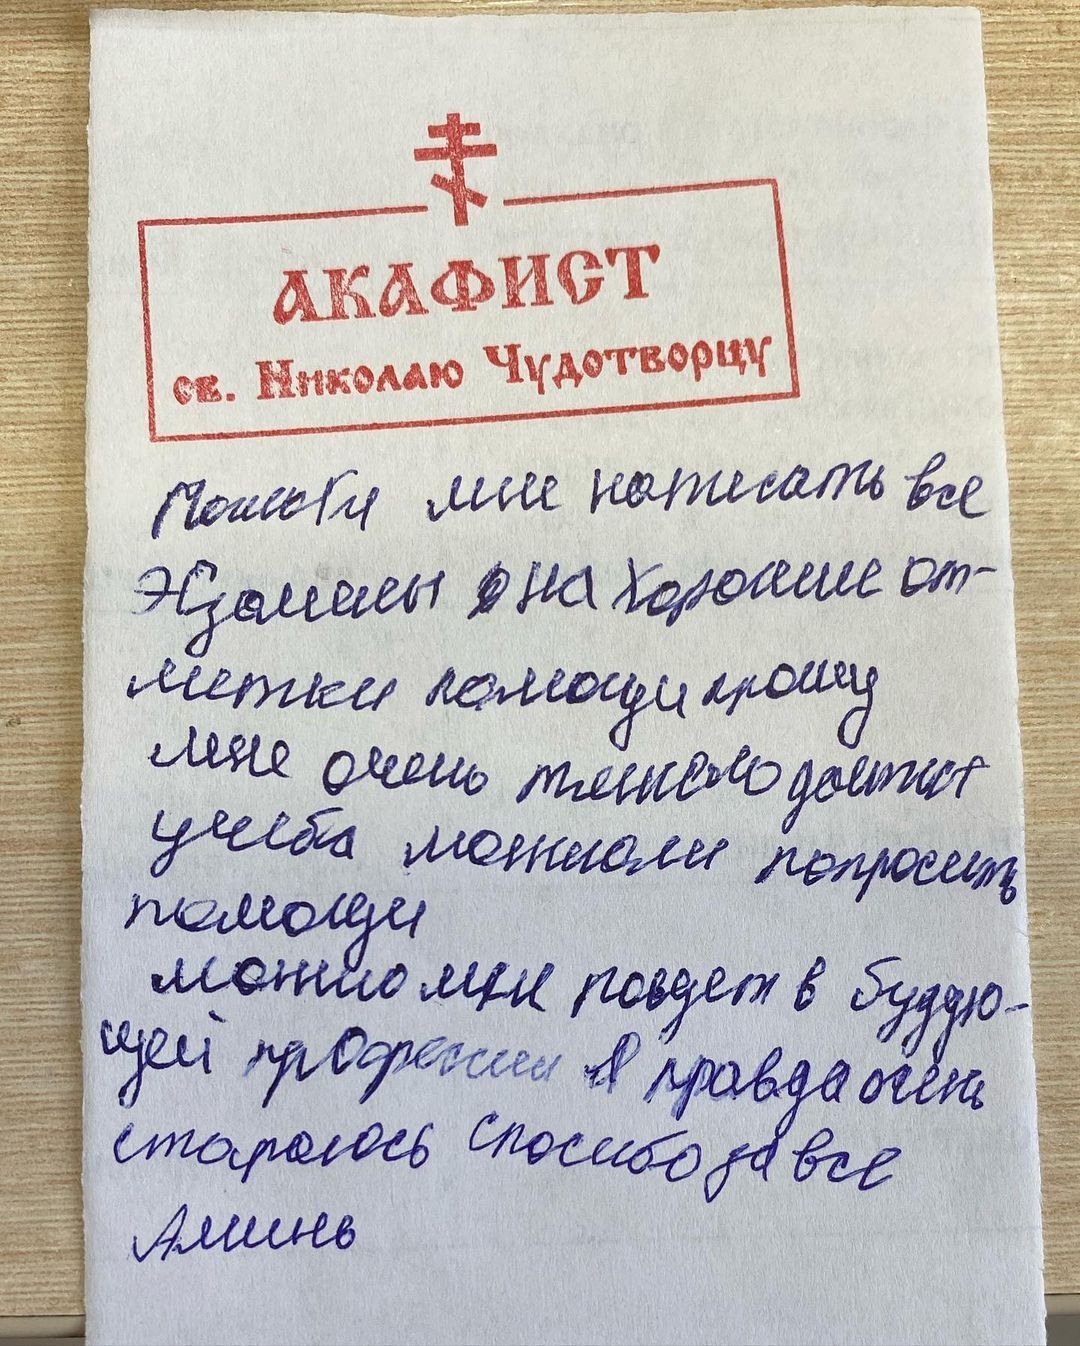 АКАФИСТ
св. Николаю Чудотворцу
Помоги мне написать все
Экзамены на хорошие от-
метки помощи прошу
мне очень тяжело даётся
учеба можноли попросить
помощи
можно мне повдет в буддю-
щей професии Я правда очень
стараюсь спосибо за все
Аминь